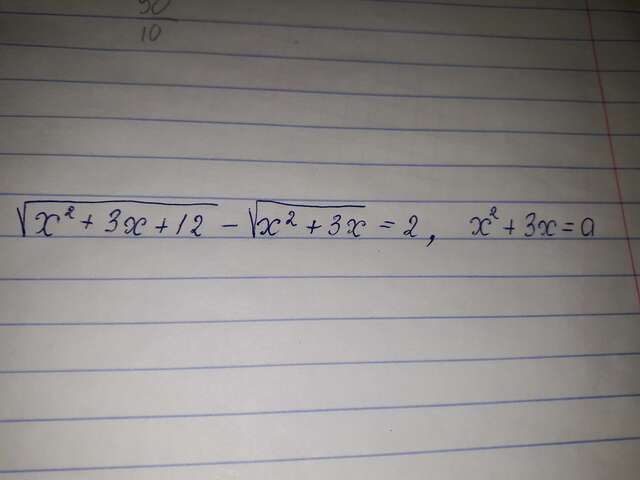 10
√x² + 3x + 12 - √x² + 3x = 2, x² + 3x = a